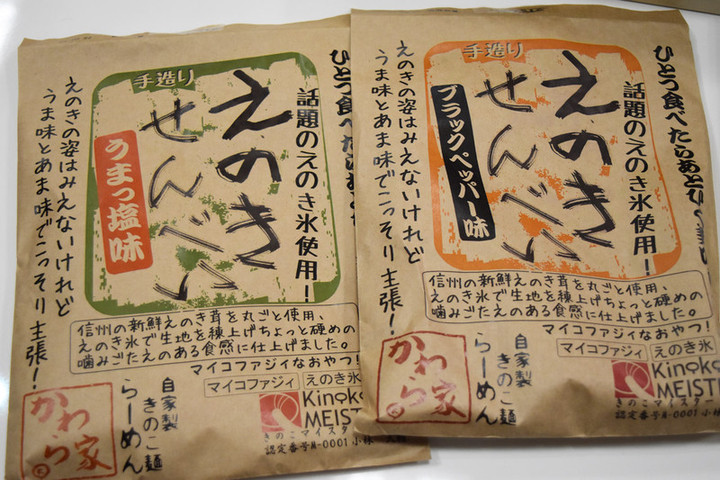 手造り
えのき
せんべい
うまっ塩味
話題のえのき氷使用!
ひとつ食べたらあと
えのきの姿はみえないけれど
うま味とあま味でこっそり主張!
信州の新鮮えのき茸を丸ごと使用、
えのき氷で生地を練上げちょっと硬めの
噛みごたえのある食感に仕上げました。
マイコファジィなおやつ!
マイコファジィ えのき氷
自家製
きのこ麺
らーめん
かわら家
Kinoko
MEIST
きのこマイスター
認定番号M-0001 小林
手造り
えのき
せんべい
ブラックペッパー味
話題のえのき氷使用!
ひとつ食べたらあとひ
えのきの姿はみえないけれど
うま味とあま味でこっそり主張!
信州の新鮮えのき茸を丸ごと使用、
えのき氷で生地を練上げちょっと硬めの
噛みごたえのある食感に仕上げました。
マイコファジィなおやつ!
マイコファジィ えのき氷
自家製
きのこ麺
らーめん
かわら家
Kinoko
MEISTER
きのこマイスター
認定番号M-0001 小林